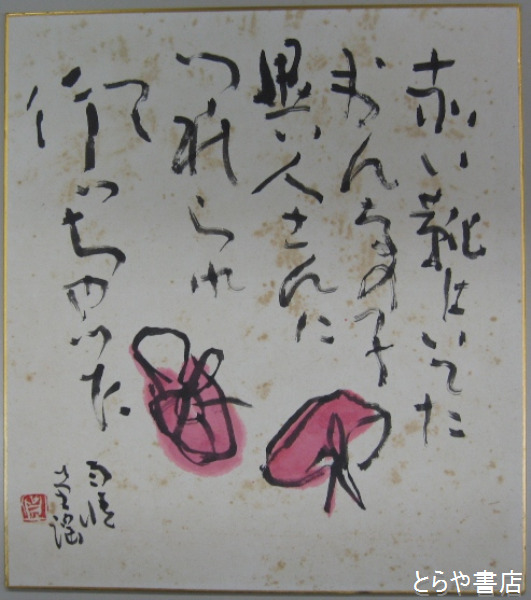 赤い靴はいてた
おんなの子
異人さんに
つれられ
て
行っちゃった
雨情
童謡
とらや書店